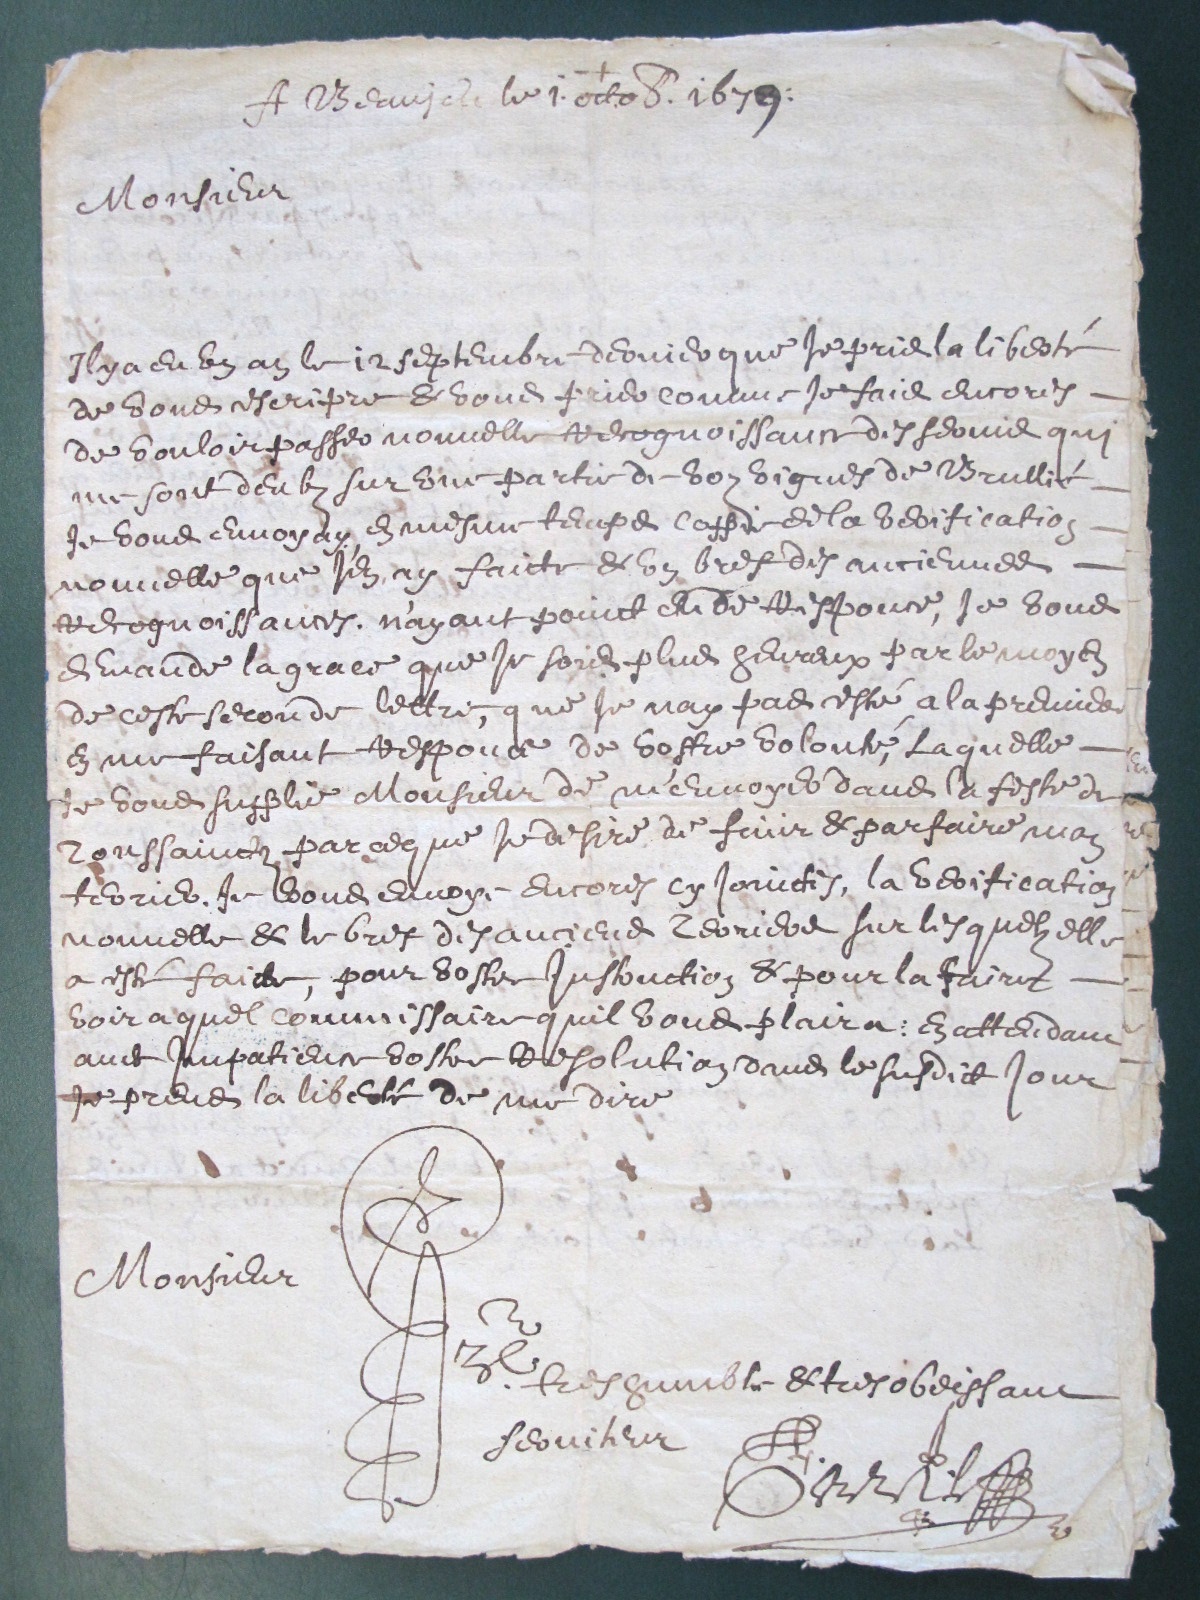 A le 1. octob. 1679:
Monsieur
Il y a eu un an le 12 septembre dernier que Je pris la liberté
de vous escripre & vous prier comme Je fais encores
de vouloir passer nouvelle recognoissance des servis qui
me sont deub sur une partie de voz vignes de
Je vous envoyay en mesme temps coppie de la verification
nouvelle que J'en ay faicte & un bref des anciennes
recognoissances. n'ayant point eu de responce, Je vous
demande la grace que Je sois plus heureux par le moyen
de ceste seconde lettre, que Je nay pas esté a la premiere
en me faisant responce de vostre volonté, Laquelle
Je vous supplie Monsieur de m'envoyer dans la feste de
Toussainctz parceque Je desire de finir & parfaire mon
terrier. Je vous envoye encores cy Joinctes, la verification
nouvelle & le bref des anciens Terriers sur lesquelz elle
a esté faicte, pour vostre Instruction & pour la faire
voir a quel commissaire quil vous plaira: en attendant
avec Impatience vostre resolution dans le susdict Jour
Je prens la liberté de me dire
Monsieur
Vre tres humble & tres obeissant
serviteur